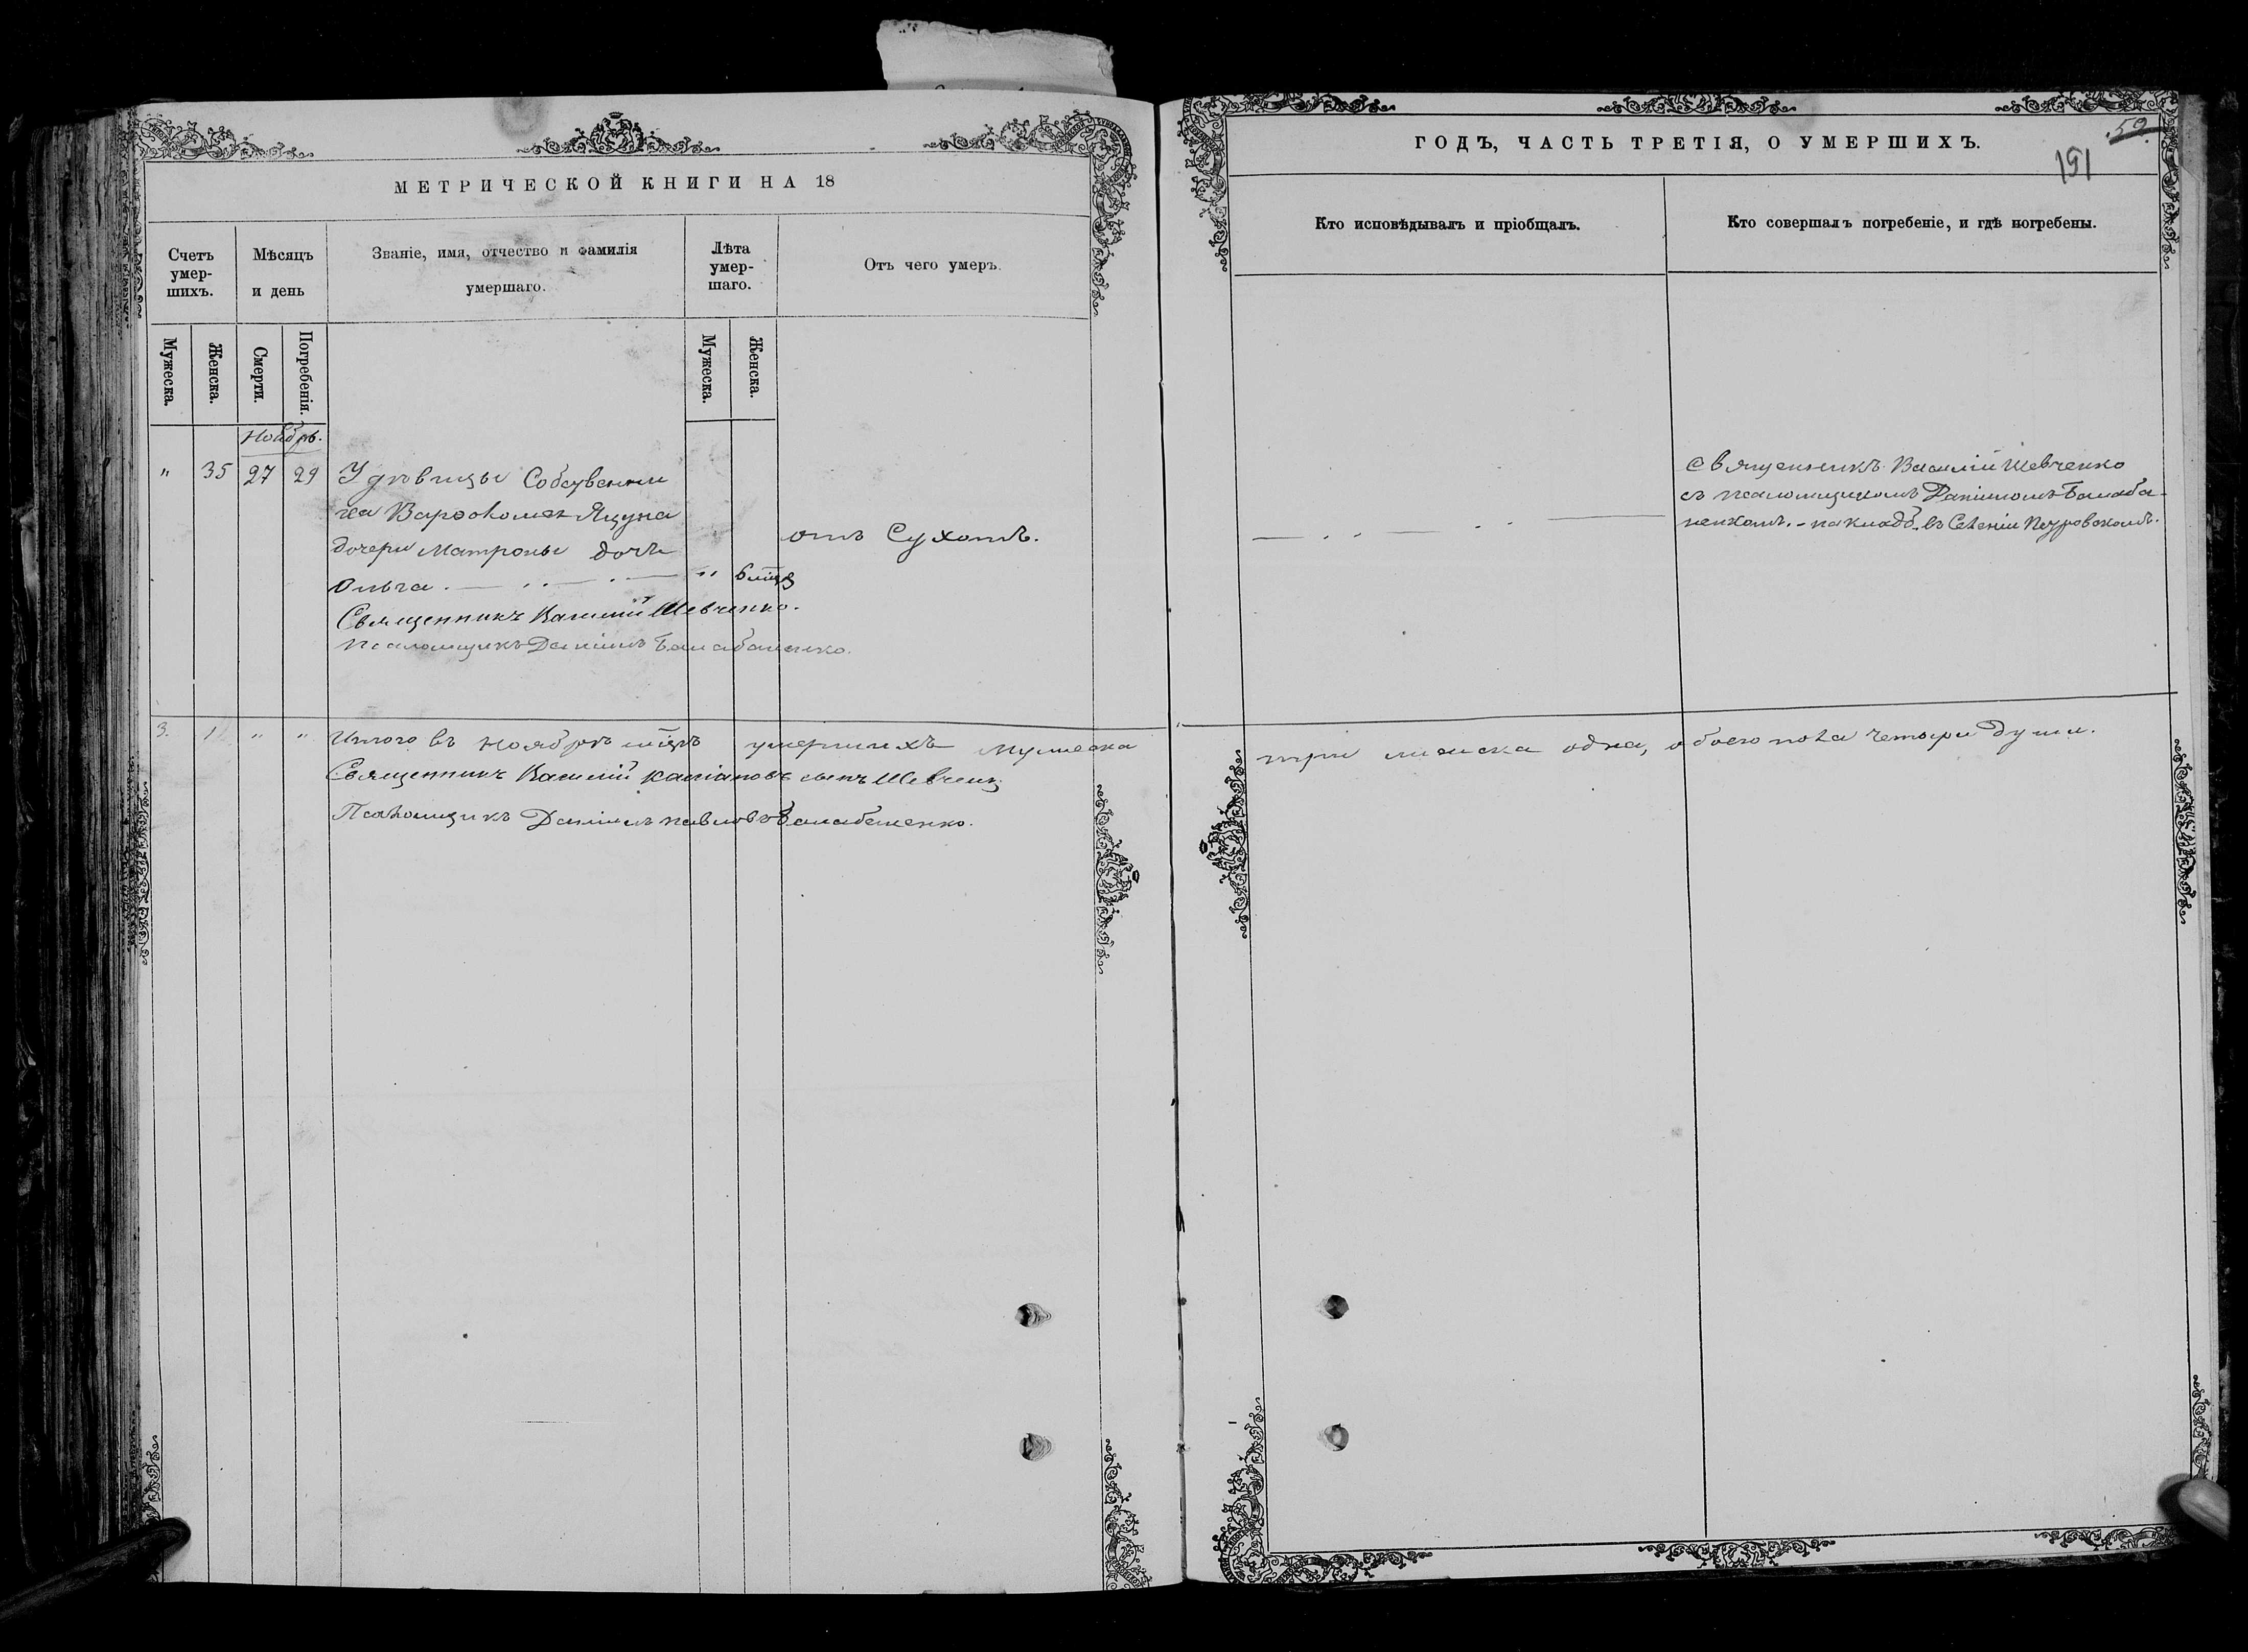 МЕТРИЧЕСКОЙ КНИГИ НА 18
Счетъ умер-шихъ.
Мѣсяцъ и день
Званіе, имя, отчество и фамилія умершаго.
Лѣта умер-шаго.
Отъ чего умеръ.
Мужеска.
Женска.
Смерти.
Погребенія.
Мужеска.
Женска.
Ноябрь.
" 35 27 29
У дѣвицы Собственни
ка Варѳоломея Яцуна
дочери Матроны дочь
Ольга. " 6 мцв
отъ Сухотъ.
Священникъ Василій Шевченко.
Псаломщикъ Даніилъ Балабаненко.
3. 1 " " Итого въ Ноябрѣ мцѣ умершихъ мужеска
Священникъ Василій Касіановъ сынъ Шевченко
Псаломщикъ Даніилъ Павловъ Балабаненко.
59.
ГОДЪ, ЧАСТЬ ТРЕТІЯ, О УМЕРШИХЪ.
151
Кто исповѣдывалъ и пріобщалъ.
Кто совершалъ погребеніе, и гдѣ погребены.
Священникъ Василій Шевченко
съ псаломщикомъ Даніиломъ Балаба-
ненкомъ. - на кладб. въ Селеніи Петровскомъ.
три женска одна, обоего пола четыри души.